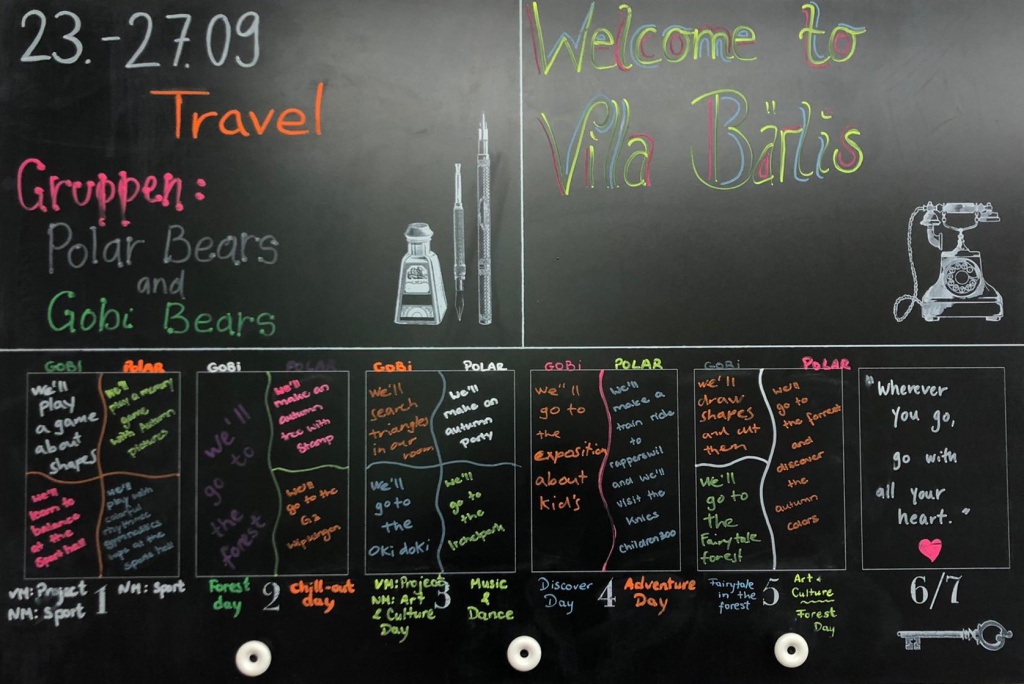 23.-27.09
Travel
Gruppen:
Polar Bears
and
Gobi Bears
Welcome to
Villa Bärlis
GOBI
POLAR
We'll
play
a game
about
shapes
We'll
play a memory
game
with Autumn
pictures
We'll
learn to
balance
at the
Sport hall
We'll
play with
colorful
rhythmic
gymnastics
tape at the
sports hall
VM: Project
NM: Sport
1
NM: Sport
GOBI
POLAR
We'll
go to
the
forest
We'll
make an
autumn
tree with
Stamp
We'll
go to the
GZ
Wipkingen
Forest
day
2
Chill-out
day
GOBI
POLAR
We'll
search
triangles
in our
room
We'll
make an
autumn
party
We'll
go to
the
Oki doki
We'll
go to
the
VM: Project
NM: Art
& Culture
Day
3
Music
&
Dance
GOBI
POLAR
We'll
go to
the
exposition
about
kid's
We'll
make a
train ride
to
rapperswil
and we'll
visit the
Knies
Childrenzoo
Discover
Day
4
Adventure
Day
GOBI
POLAR
We'll
draw
shapes
and cut
them
We'll
go to
the
Fairytale
forest
We'll
go to
the forrest
and
discover
the
autumn
colors
Fairytale
in the
forest
5
Art &
Culture
Forest
Day
"Wherever
you go,
go with
all your
heart."
6/7